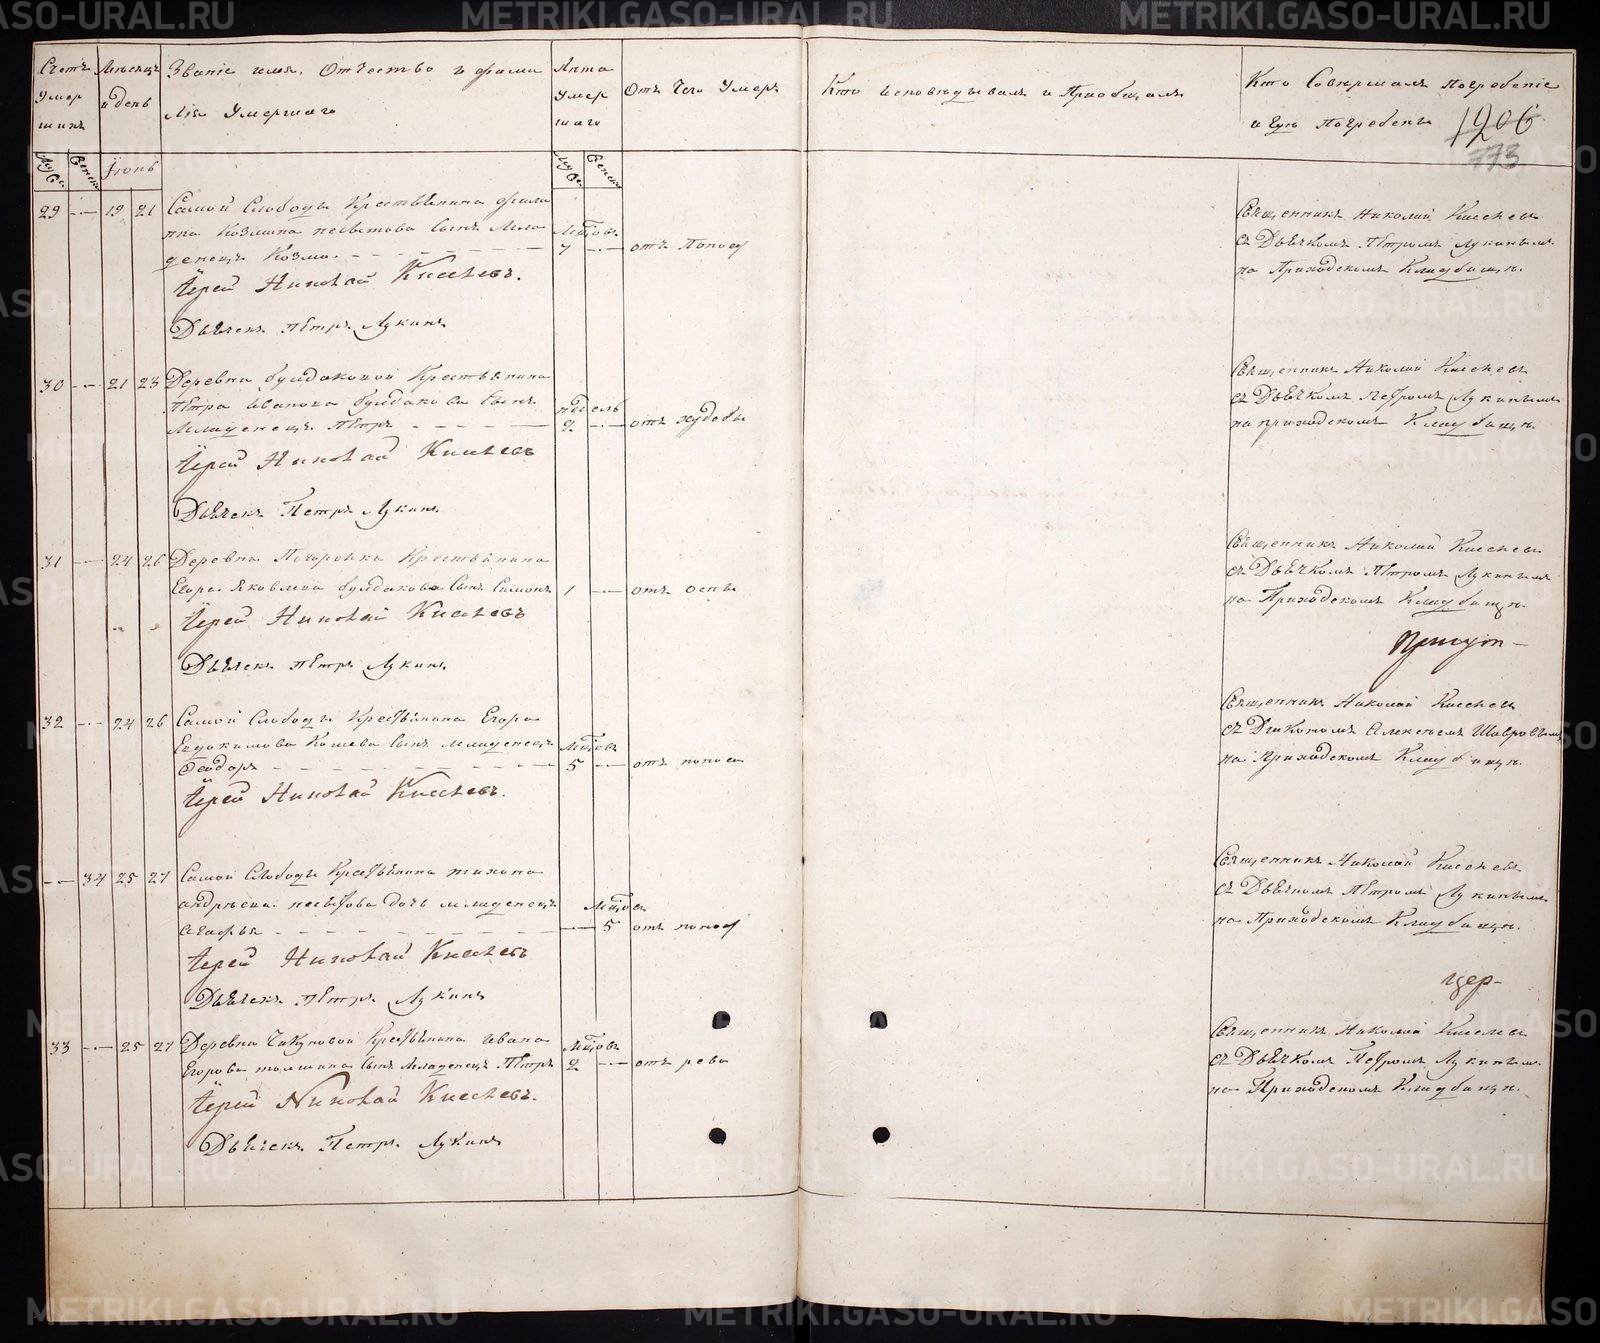 Счетъ умершихъ
Мѣсяцъ и день
Званіе имя, Отчество и фамилія Умершаго
Лѣта умершаго
Отъ Чего Умеръ
Кто исповѣдывалъ и Приобщалъ
Кто Совершалъ погребеніе и гдѣ погребенъ
1206
773
Муж Женск
Іюнь
Муж Женск
29 19 21 Самой Слободы Крестьянина фили
ппа Козмина сынъ Мла
денецъ Козма
Мѣсяцовъ 7
отъ Поносу
Іерей Николай Киселевъ.
Дьячекъ Петръ Лукинъ
Священникъ Николай Киселевъ
съ Дьячкомъ Петромъ Лукинымъ
на Приходскомъ Кладбищѣ.
30 21 23 Деревни булдаковой Крестьянина
Петра Иванова булдакова сынъ
Младенецъ Петръ
недель 2
отъ худобы
Іерей Николай Киселевъ
Дьячекъ Петръ Лукинъ
Священникъ Николай Киселевъ
съ Дьячкомъ Петромъ Лукинымъ
на приходскомъ Кладбищѣ.
31 24 26 Деревни Крестьянина
Егора Яковлева булдакова сынъ Симонъ
1
отъ оспы
Іерей Николай Киселевъ
Дьячекъ Петръ Лукинъ
Священникъ Николай Киселевъ
съ Дьячкомъ Петромъ Лукинымъ
на Приходскомъ Кладбищѣ.
32 24 26 Самой Слободы Крестьянина Егора
Евдокимова сынъ младенецъ
Феодоръ
Мѣсяцовъ 5
отъ поноса
Іерей Николай Киселевъ.
Священникъ Николай Киселевъ
съ Діакономъ Алексѣемъ
на Приходскомъ Кладбищѣ.
34 25 27 Самой Слободы Крестьянина тихона
андрѣева дочь младенецъ
агафья
Мѣсяцовъ 5
отъ поносу
Іерей Николай Киселевъ
Дьячекъ Петръ Лукинъ
Священникъ Николай Киселевъ
съ Дьячкомъ Петромъ Лукинымъ
на Приходскомъ Кладбищѣ.
цер-
33 25 27 Деревни Крестьянина ивана
Егорова сынъ Младенецъ Петръ
Мѣсяцовъ 2
отъ рева
Іерей Николай Киселевъ.
Дьячекъ Петръ Лукинъ
Священникъ Николай Киселевъ
съ Дьячкомъ Петромъ Лукинымъ
на Приходскомъ Кладбищѣ.
METRIKI.GASO-URAL.RU